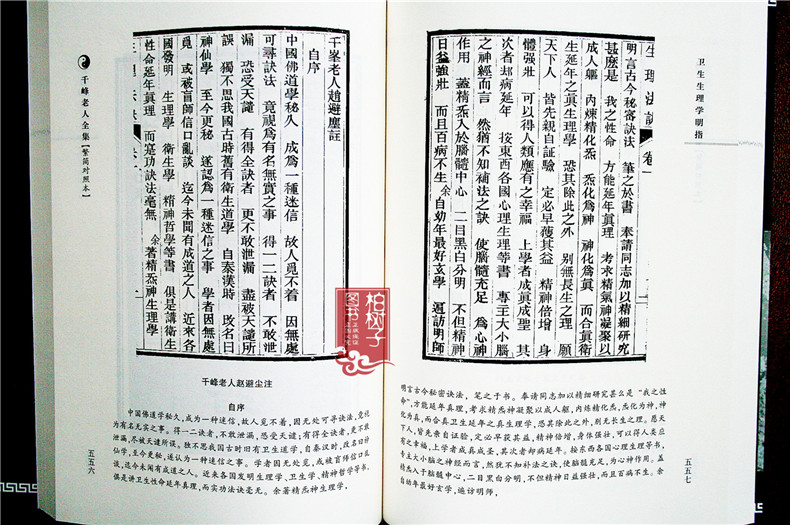 千峰老人全集【繁简对照本】
千峯老人趙避塵註
自序
中國佛道學秘久 成為一種迷信 故人覓不着 因無處
可尋訣法 竟視為有名無實之事 得一二訣者 不敢泄
漏 恐受天譴 有得全訣者 更不敢泄漏 盡被天譴所
誤 獨不思我國古時舊有衛生道學 自秦漢時 改名曰
神仙學 至今更秘 遂認為一種迷信之事 學者因無處
覓 或被盲師信口亂談 迄今未聞有成道之人 近來各
國發明 生理學 衛生學 精神哲學等書 俱是講衛生
性命延年眞理 而寔功訣法毫無 余著精炁神生理學
千峰老人赵避尘注
自序
中国佛道学秘久，成为一种迷信，故人觅不着，因无处可寻诀法，竟视
为有名无实之事。得一二诀者，不敢泄漏，恐受天谴；有得全诀者，更不敢
泄漏，尽被天谴所误。独不思我国古时旧有卫生道学，自秦汉时，改名曰神
仙学，至今更秘，遂认为一种迷信之事。学者因无处觅，或被盲师信口乱
谈，迄今未闻有成道之人。近来各国发明生理学、卫生学、精神哲学等书，
俱是讲卫生性命延年真理，而实功诀法毫无。余著精炁神生理学，
五五六
卫生生理学明指
生理法訣 卷一
明言古今秘審訣法 筆之於書 奉請同志加以精細研究
甚麼是 我之性命 方能延年眞理 考求精氣神凝聚以
成人軀 內煉精化炁 炁化為神 神化為眞 而合眞衛
生延年之眞生理學 恐其除此之外 別無長生之理 願
天下人 皆先親自証驗 定必早獲其益 精神倍增 身
體强壯 可以得人類應有之幸福 上學者成眞成聖 其
次者却病延年 按東西各國心理生理等書 專主大小腦
之神經而言 然猶不知補法之訣 使腦髓充足 為心神
作用 蓋精炁入於腦髓中心 二目黑白分明 不但精神
日益強壯 而且百病不生 余自幼年最好玄學 遍訪明師
明言古今秘密诀法，笔之于书。奉请同志加以精细研究甚么是“我之性
命”，方能延年真理，考求精炁神凝聚以成人躯，内炼精化炁，炁化为神，神
化为真，而合真卫生延年之真生理学，恐其除此之外，别无长生之理。愿天
下人，皆先亲自证验，定必早获其益，精神倍增，身体强壮，可以得人类应
有之幸福，上学者成真成圣，其次者却病延年。按东西各国心理生理等书，
专主大小脑之神经而言，然犹不知补法之诀，使脑髓充足，为心神作用。盖
精炁入于脑髓中心，二目黑白分明，不但精神日益强壮，而且百病不生。余
自幼年最好玄学，遍访明师，
五五七
柏树子
图书